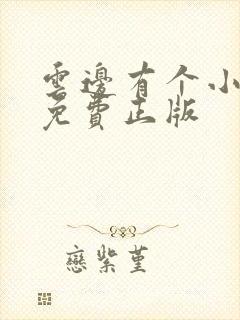 雲邊有个小
免費正版
戀紫堇